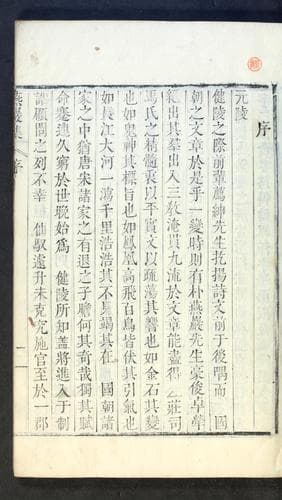 序
元陵
健陵之際前輩薦紳先生抡揚詩文前于後喁而 國
朝之文章於是乎一變時則有朴燕巖先生豪俊卓犖
絶出其羣出入三教淹貫九流於文章能盡得 莊司
馬氏之精髓裏以平實文以疏蕩其響也如金石其變
也如鬼神其標旨也如鳳凰高飛百鳥皆伏其引氣也
如長江大河一瀉千里浩浩其不見竭在 國朝諸
家之中猶唐宋諸家之有退之子瞻何其奇哉獨其賦
命蹇連久窮於世晩始爲 健陵所知蓋將進入于制
誥顧問之列不幸 仙馭遠升未克究施官至於一郡
燕巖集 序 一